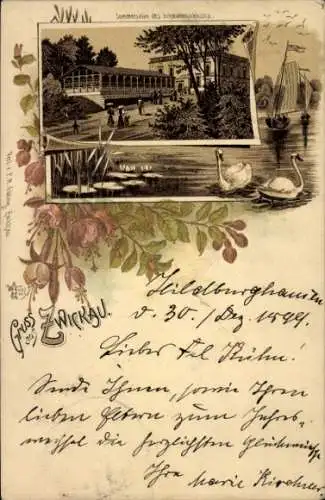 Gruss aus Zwickau.
Hildburghausen
d. 30./Dez. 1899.
Liebes Frl Kühn!
Sende Ihnen, sowie Ihren
lieben Eltern zum Jahres-
wechsel die herzlichsten Glückwünsche
Ihre Marie Kirchner